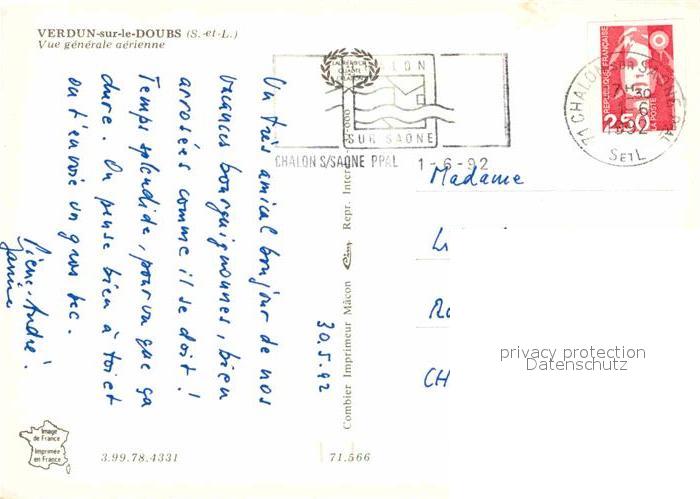 VERDUN-sur-le-DOUBS (S.-et-L.)
Vue générale aérienne
CHALON
SUR SAONE
CHALON S/SAONE PPAL 1-6-92
REPUBLIQUE FRANÇAISE
2,50
LA POSTE
71 CHALON SUR SAONE PPAL
1-6
1992
S ET L
30.5.92
Un très amical bonjour de nos
vacances bourguignonnes, bien
arrosées comme il se doit !
Temps splendide, pourvu que ça
dure. On pense bien à toi et
on t'envoie un gros bec.
Pierre-André !
Janine
Combier Imprimeur Mâcon Cim Repr. Inter
Madame
CH
privacy protection
Datenschutz
Image
de France
Imprimée
en France
3.99.78.4331
71.566